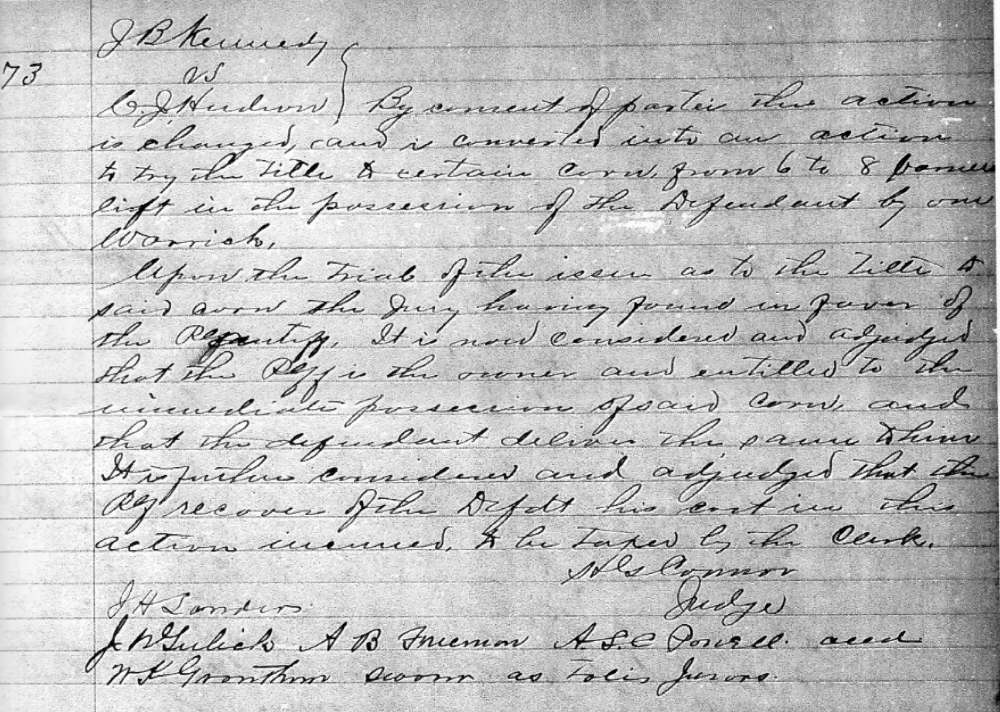 J B Kennedy
73 vs
C. J. Hudson } By consent of parties this action
is changed, and is converted into an action
to try the title to certain corn, from 6 to 8 barrels
left in the possession of the Defendant by one
Warrick.
Upon the trial of the issue as to the title to
said corn the Jury having found in favor of
the Plaintiff, It is now considered and adjudged
that the Plff is the owner and entitled to the
immediate possession of said corn, and
that the defendant deliver the same to him
It is further considered and adjudged that the
Plf recover of the Defdt his cost in this
action incurred, to be taxed by the Clerk.
H G Connor
J H Sanders Judge
J. W Gulick A B Freeman A. S. C Powell. and
W K Grantham sworn as Tolis Jurors.